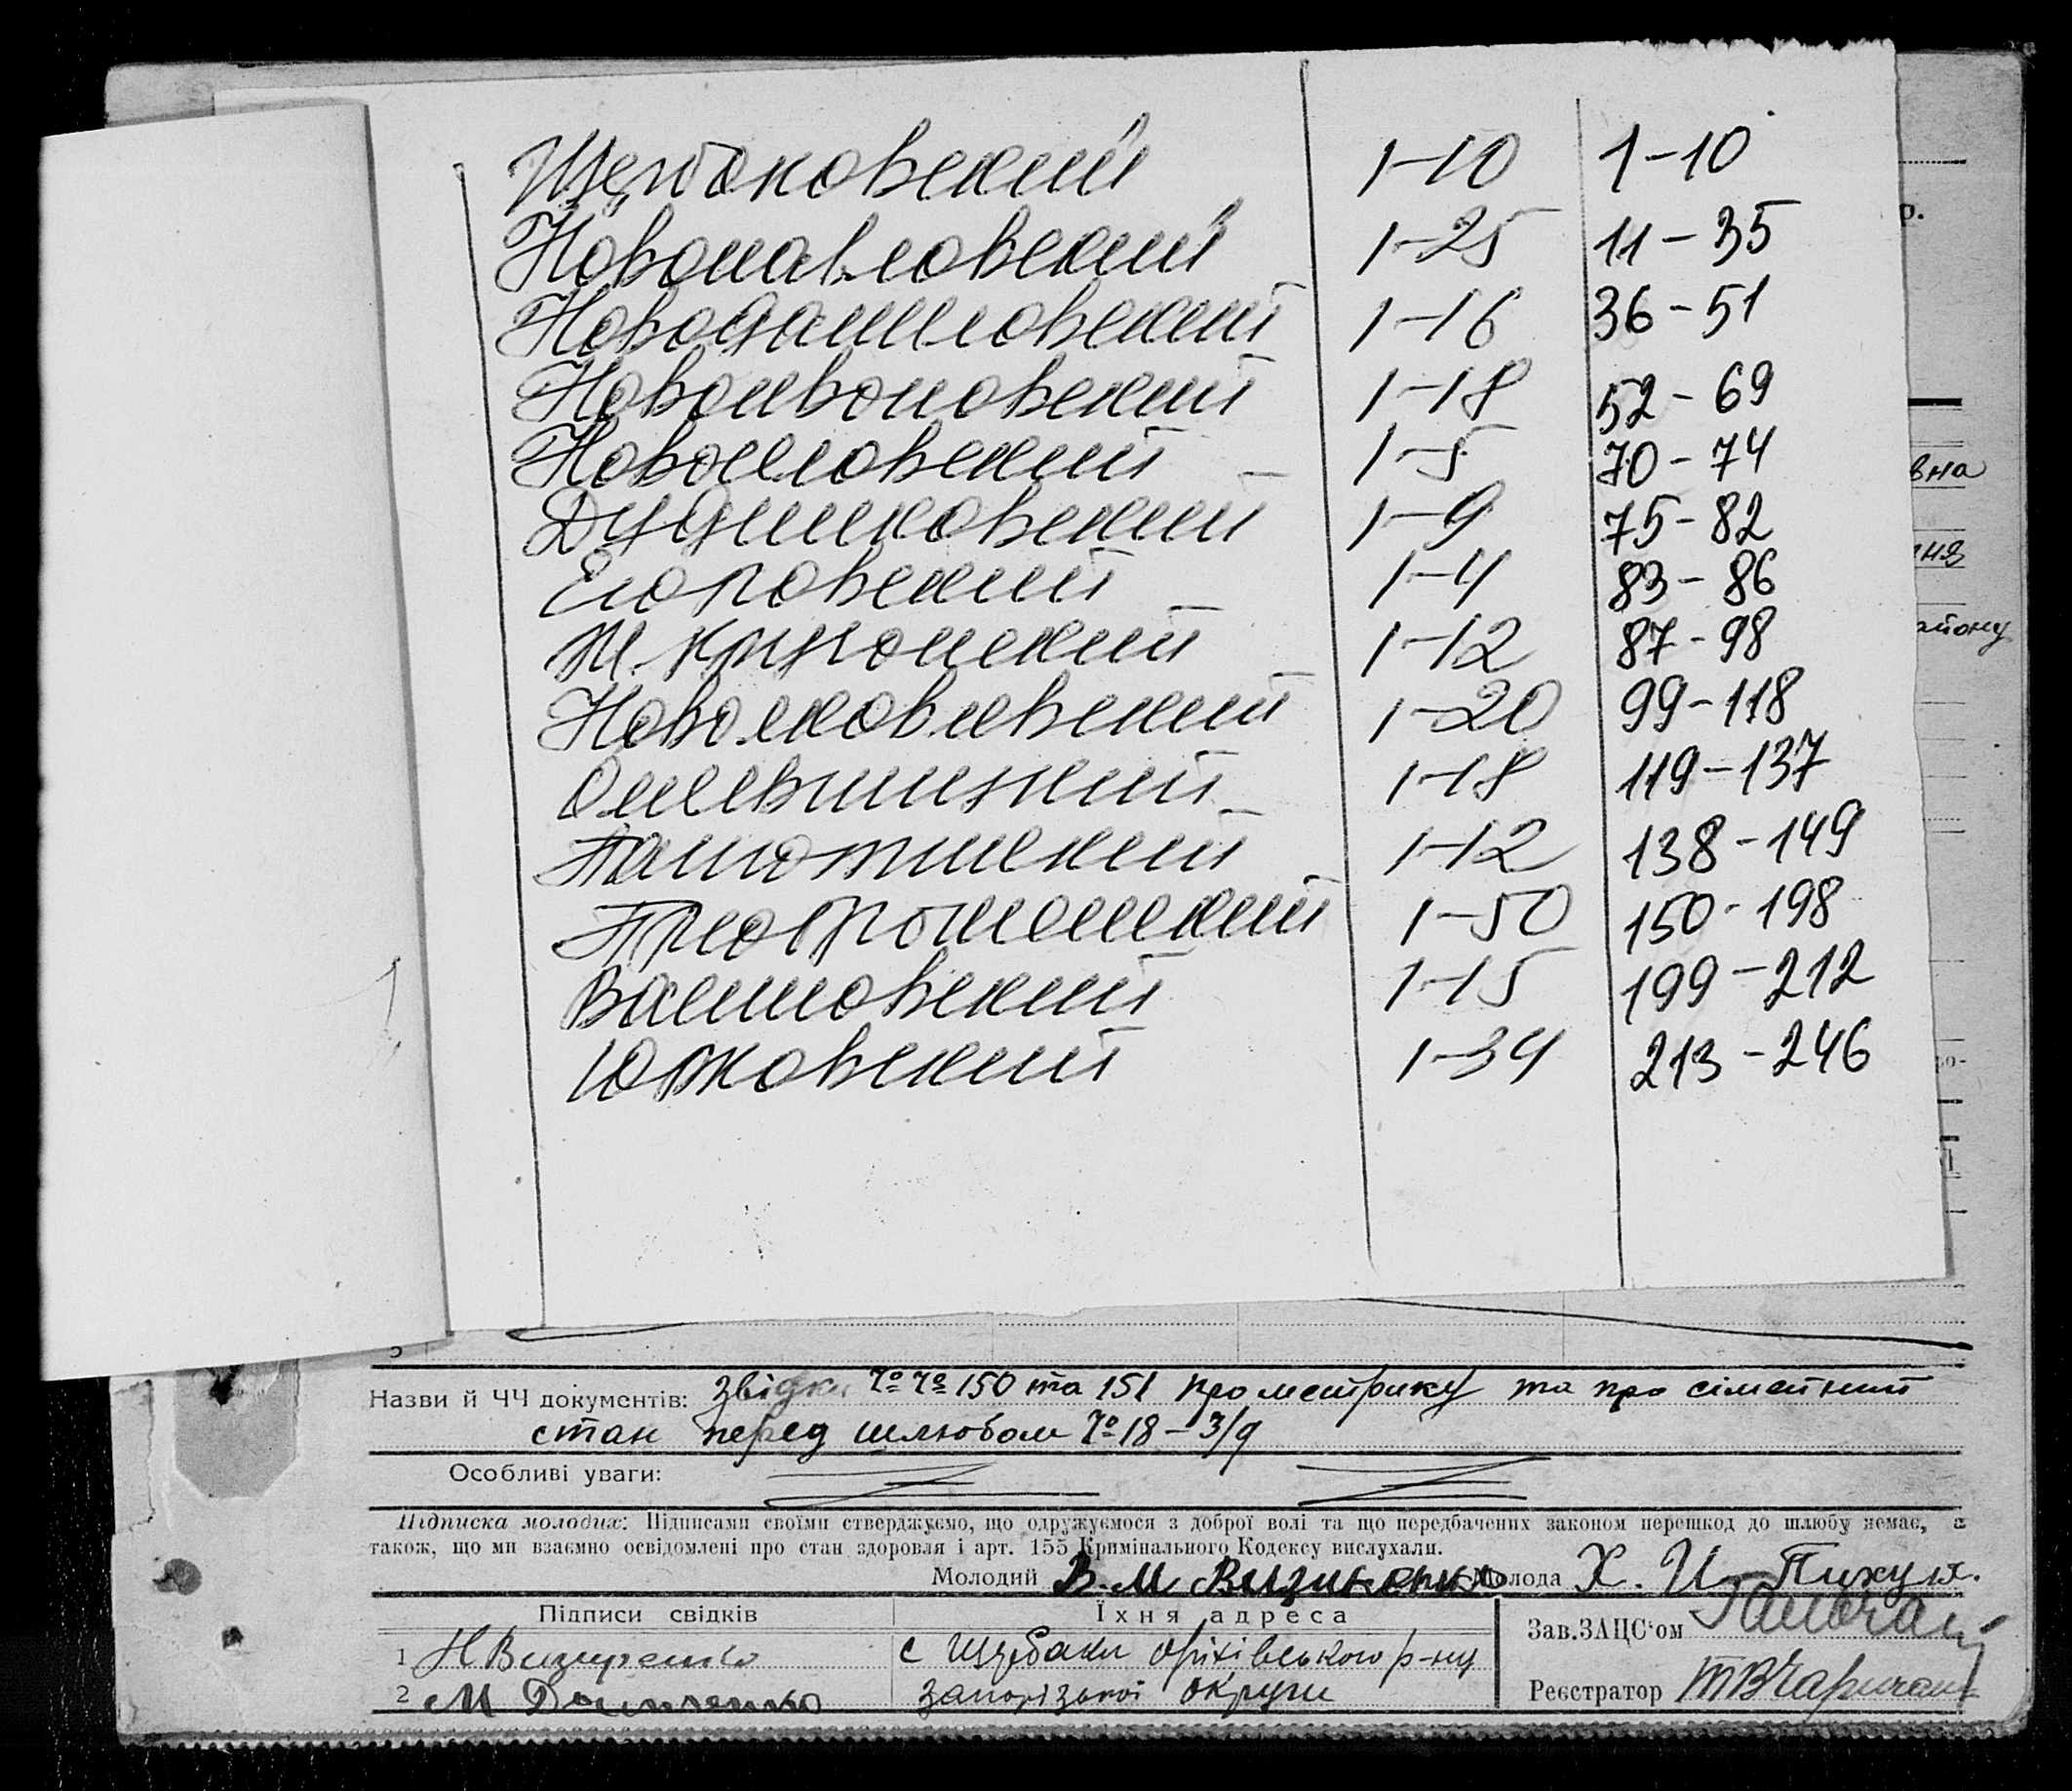 Щербаковский 1-10 1-10
Новопавловский 1-25 11-35
Новоданиловский 1-16 36-51
Новоивановский 1-18 52-69
1-5 70-74
Дудниковский 1-9 75-82
Егоровский 1-4 83-86
1-12 87-98
Новояковлевский 1-20 99-118
1-18 119-137
1-12 138-149
Преображенский 1-50 150-198
1-15 199-212
Юрковский 1-34 213-246
р.
вна
ння
району
5
Назви й ЧЧ документів: звідки №№ 150 та 151 про метрику та про сімейний
стан перед шлюбом № 18 - 3/д
Особливі уваги:
Підписка молодих: Підписами своїми стверджуємо, що одружуємося з доброї волі та що передбачених законом перешкод до шлюбу немає, а
також, що ми взаємно освідомлені про стан здоровля і арт. 155 Кримінального Кодексу вислухали.
Молодий В. М Молода Х. И.
Підписи свідків Їхня адреса Зав.ЗАЦС'ом
1 Н Визиренко с Щербаки Оріхівського р-ну
2 М запорізької округи Реєстратор